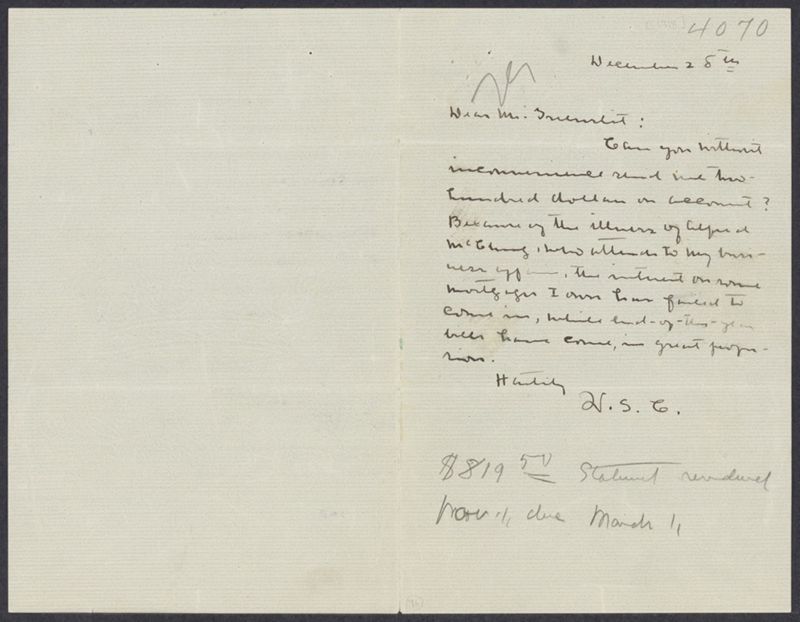 4070
December 25th
Dear Mr. Greenslet:
Can you without
inconvenience send me two-
hundred dollars on account?
Because of the illness of Alfred
McClung, who attends to my busi-
ness affairs, the interest on some
mortgages I own has failed to
come in, while end-of-the-year
bills have come, in great profu-
sion.
Hastily
W. S. C.
$819 50 Statement rendered
Nov. 1, due March 1,